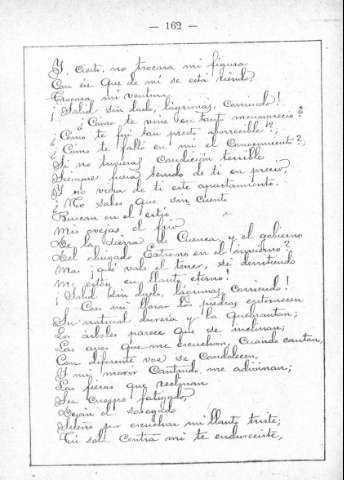 — 162 —
Y cierto, no trocara mi figura
Con ese que de mi se está riendo;
Trocara mi ventura.
¡Salid sin duelo, lágrimas, corriendo!
¿Cómo te vine en tanto menosprecio?
¿Cómo te fuí tan presto aborrecible?;
¿Cómo te faltó en mi el conocimiento?;
Si no tuvieras condición terrible
Siempre fuera tenido de ti en precio,
Y no viera de ti este apartamiento.
¿No sabes que sin cuento
Buscan en el estío
Mis ovejas el frio
De la sierra de Cuenca, y el gobierno
Del abrigado Estremo en el invierno?
Mas ¡qué vale el tener, si derritiendo
Me estoy en llanto eterno!
¡Salid sin duelo, lágrimas, corriendo!
Con mi llorar las piedras enternecen
Su natural dureza y la quebrantan;
Los árboles parece que se inclinan;
Las aves que me escuchan, cuando cantan,
Con diferente voz se condolecen,
Y mi morir cantando me adivinan;
Las fieras que reclinan
Su cuerpo fatigado,
Dejan el sosegado
Sueño por escuchar mi llanto triste;
Tú sola contra mi te endureciste,